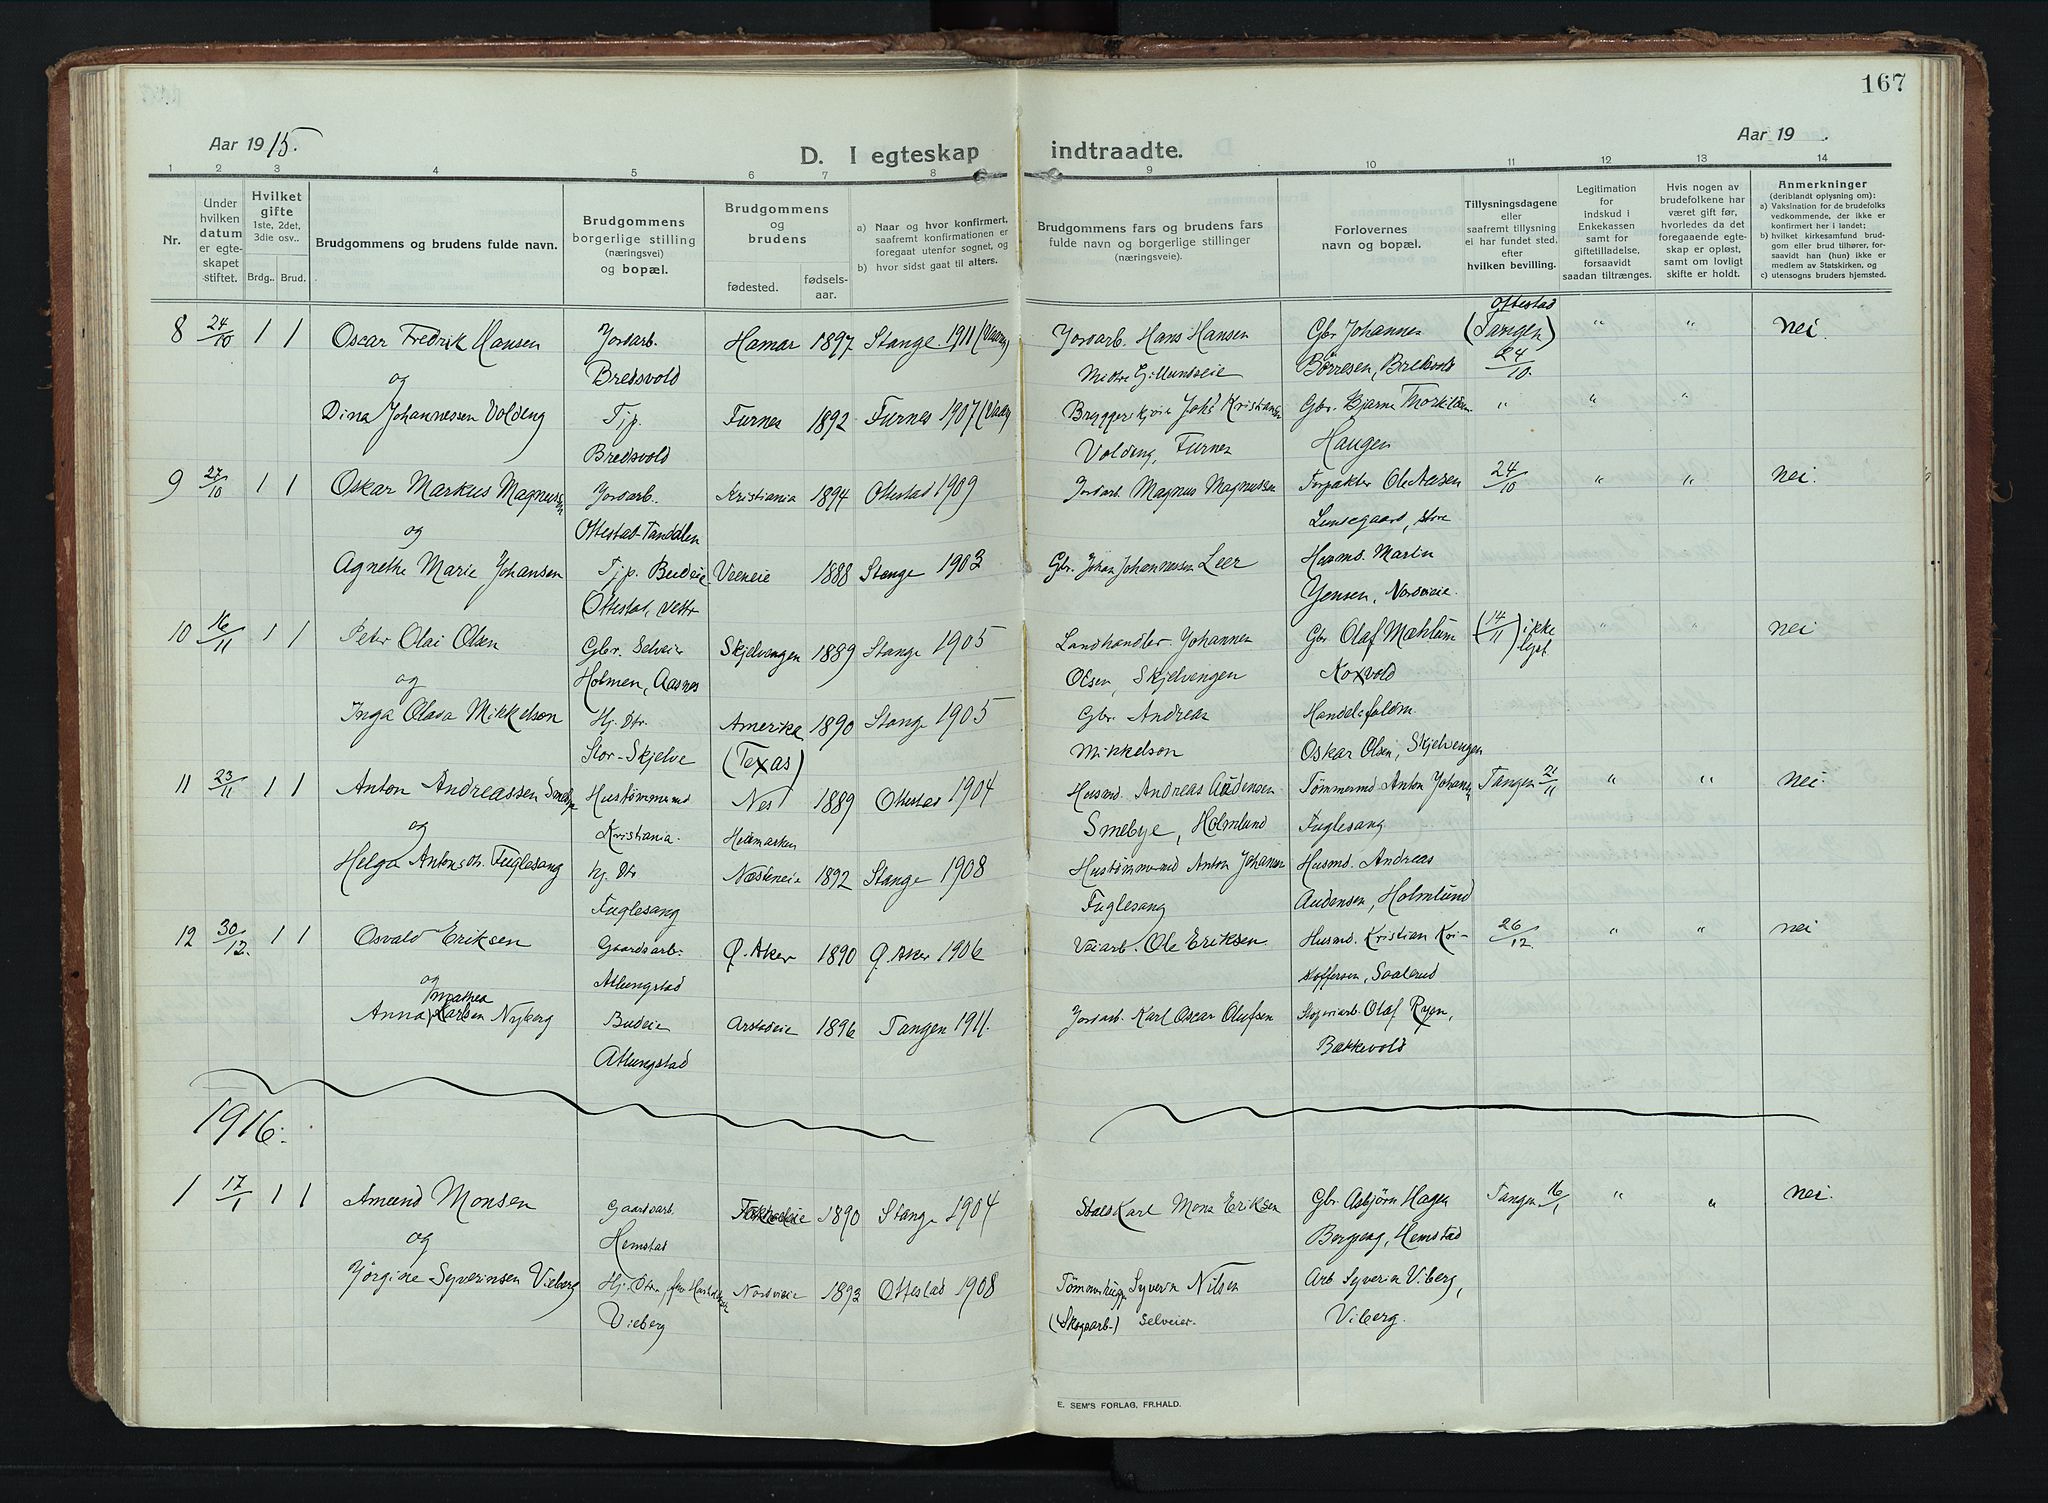 167
Aar 1915.
D. I egteskap indtraadte.
Aar 19 .
1 2 3 4 5 6 7 8 9 10 11 12 13 14
Nr.
Under hvilken datum er egteskapet stiftet.
Hvilket gifte 1ste, 2det, 3die osv..
Brdg.. Brud.
Brudgommens og brudens fulde navn.
Brudgommens borgerlige stilling (næringsvei) og bopæl.
Brudgommens og brudens
fødested. fødselsaar.
a) Naar og hvor konfirmert, saafremt konfirmationen er foregaat utenfor sognet, og
b) hvor sidst gaat til alters.
Brudgommens fars og brudens fars fulde navn og borgerlige stillinger (næringsveie).
Forlovernes navn og bopæl.
Tillysningsdagene eller saafremt tillysning ei har fundet sted, efter hvilken bevilling.
Legitimation for indskud i Enkekassen samt for giftetilladelse, forsaavidt saadan tiltrænges.
Hvis nogen av brudefolkene har været gift før, hvorledes da det foregaaende egteskap er opløst, samt om lovligt skifte er holdt.
Anmerkninger (deriblandt oplysning om):
a) Vaksination for de brudefolks vedkommende, der ikke er konfirmert her i landet;
b) hvilket kirkesamfund brudgom eller brud tilhører, forsaavidt han (hun) ikke er medlem av Statskirken, og
c) utensogns bruders hjemsted.
8 24/10 1 1 Oscar Fredrik Hansen Jordarb. Hamar 1897 Stange 1911 Jordarb. Hans Hansen Gbr. Johannes Ottestad (Tangen) " " nei.
og Bredsvold Børresen, Bredsvold 24/10.
Dina Johannessen Volding Tjp. Furnes 1892 Furnes 1907 Kristiansen Gbr. Bjarne " " "
Bredsvold Volding, Furnes Haugen
9 27/10 1 1 Oskar Markus Magnussen Jordarb. Kristiania 1894 Ottestad 1909 Jordarb. Magnus Magnussen Forpakter 24/10 " " nei.
og Ottestad
Agnethe Marie Johansen Tjp. Budeie 1888 Stange 1903 Gbr. Johan Johannessen Leer Husmd. Martin
Ottestad, vestr Jensen,
10 16/11 1 1 Peter Olai Olsen Gbr. Selveier Skjelvengen 1889 Stange 1905 Landhandler Johannes Gbr Olaf Mæhlum (14/11) ikke lyst. " " nei
og Holmen, Aasnes Olsen, Skjelvengen Koxvold
Inga Olava Mikkelson Hj. Dtr. Amerika 1890 Stange 1905 Gbr. Andreas
Stor-Skjelve (Texas) Mikkelson Oskar Olsen, Skjelvengen
11 23/11 1 1 Anton Andreassen Hustømmermd Nes 1889 Ottestad 1904 Husmd. Andreas Audensen Tømmermd Anton Johansen Tangen 21/11 " " nei.
og Kristiania. Hedmarken Smebye, Holmlund Fuglesang
Helga Antonsdtr. Fuglesang Hj. Dtr 1892 Stange 1908 Hustømmermd Anton Johansen Husmd. Andreas
Fuglesang Fuglesang Audensen, Holmlund
12 30/12. 1 1 Osvald Eriksen Gaardsarb. Ø. Aker 1890 Ø. Aker 1906 Veiarb. Ole Eriksen Husmd. Kristian Kri- 26/12. " " nei
og Atlungstad stoffersen, Saalerud
Anna Mathea Karlsen Nyberg Budeie Arstadeie 1896 Tangen 1911. Jordarb. Karl Oscar Olufsen Skogsarb. Olaf Ryen,
Atlungstad Bækkevold
1916.
1 17/1 1 1 Amund Monsen Gaardsarb. 1890 Stange 1904 Staldkarl Mons Eriksen Gbr. Asbjørn Hagen Tangen 16/1 " " nei.
og Hemstad Hemstad
Jørgine Syverinsen Vieberg Hj. Nordvieie 1893 Ottestad 1908 Syverin Nilsen Arb Syverin Viberg,
Vieberg (Skogsarb.) Selveier. Viberg.
E. SEM'S FORLAG, FR.HALD.